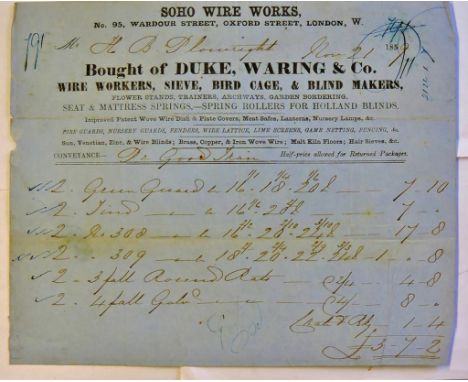 SOHO WIRE WORKS,
No. 95, WARDOUR STREET, OXFORD STREET, LONDON, W.
191
Mr H B Plowright Nov 21 185
Bought of DUKE, WARING & Co.
WIRE WORKERS, SIEVE, BIRD CAGE, & BLIND MAKERS,
FLOWER STANDS, TRAINERS, ARCHWAYS, GARDEN BORDERING,
SEAT & MATTRESS SPRINGS,—SPRING ROLLERS FOR HOLLAND BLINDS.
Improved Patent Wove Wire Dish & Plate Covers, Meat Safes, Lanterns, Nursery Lamps, &c.
FIRE GUARDS, NURSERY GUARDS, FENDERS, WIRE LATTICE, LIME SCREENS, GAME NETTING, FENCING, &c.
Sun, Venetian, Zinc, & Wire Blinds; Brass, Copper, & Iron Wove Wire; Malt Kiln Floors; Hair Sieves, &c.
CONVEYANCE— Half-price allowed for Returned Packages.
2 Green Guard 16 18 20 — 7 - 10
2 — 16 20 — 7 -
2 - R. 308 — 16 20 24 — 17 - 8
2 - 309 — 18 20
2 - 3 fall Round Rats — 2/4 — 4 - 8
2 - 4 fall Galv — 4/ — 8 -
1 - 4
£3 - 7 - 2